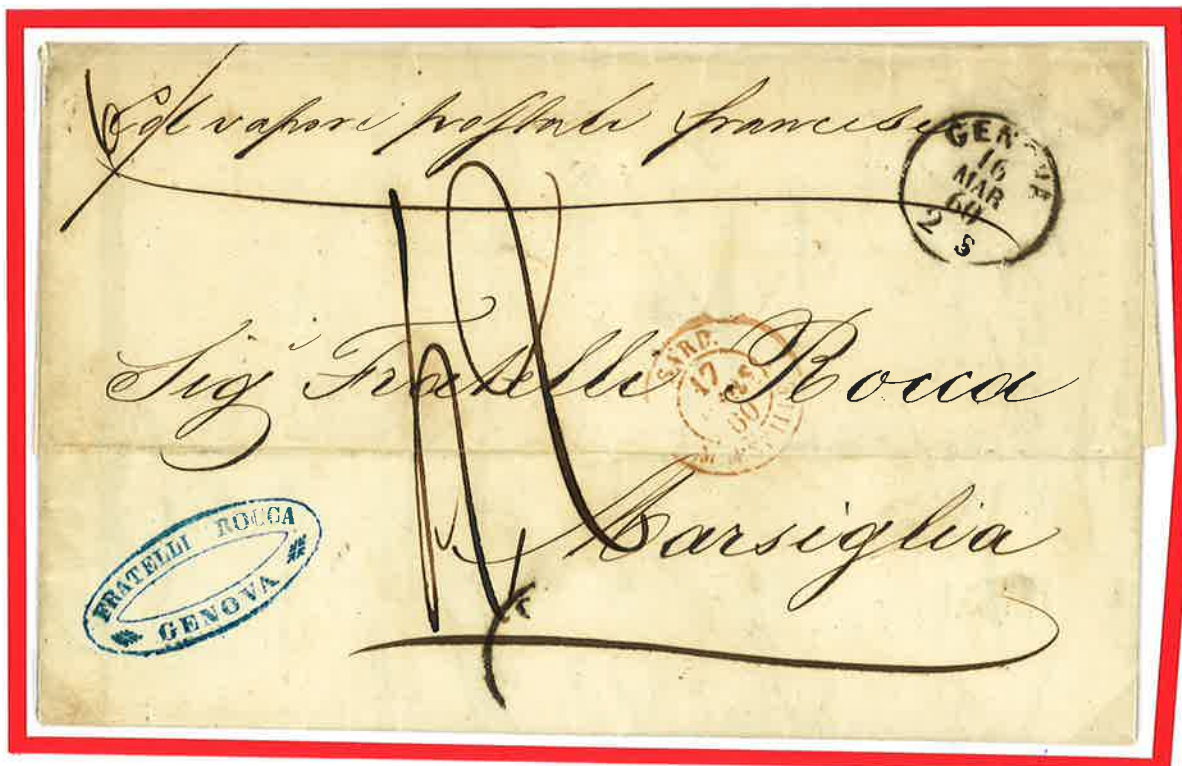 vapori postali francesi
GENOVA
16
MAR
60
2 S
SARD.
17
60
Sig.i Fratelli Rocca
Marsiglia
FRATELLI ROCCA
GENOVA